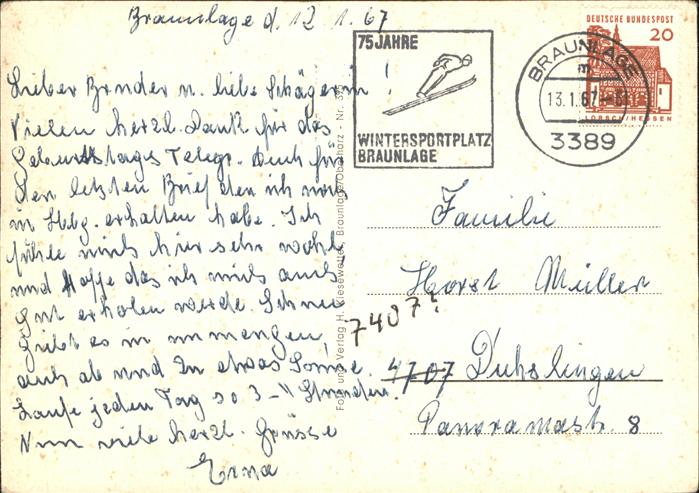 Braunlage d. 12 1. 67
Lieber Bruder u. liebe Schägerin!
Vielen herzl. Dank für das
Geburtstages Telegr. Auch für
den letzten Brief den ich noch
in Hbg. erhalten habe. Ich
fühle mich hier sehr wohl
und hoffe das ich mich auch
gut erholen werde. Schnee
giebt es in unmengen,
auch ab und zu etwas Sonne.
Laufe jeden Tag so 3-4 Stunden.
Nun viele herzl. Grüsse
Erna
Foto und Verlag H. Kiesewetter, Braunlage/Oberharz - Nr.
75 JAHRE
WINTERSPORTPLATZ
BRAUNLAGE
BRAUNLAGE
13.1.67
3389
DEUTSCHE BUNDESPOST
20
LORSCH/HESSEN
Familie
Horst Müller
7407?
4707 Duhslingen
Panoramastr. 8